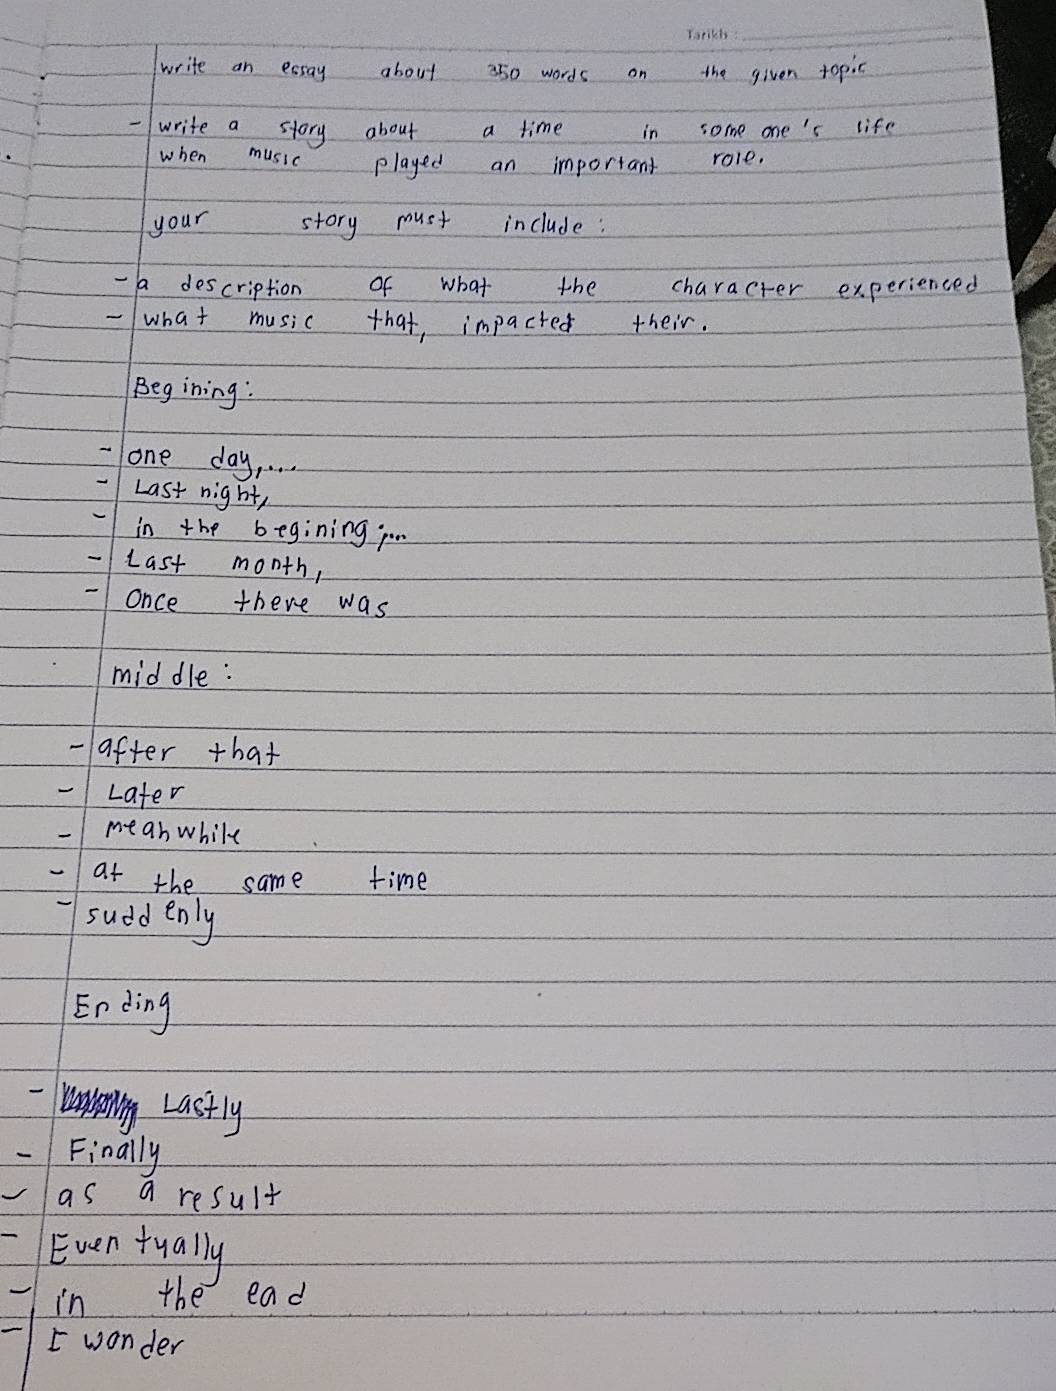 Tarikh :
write an essay about 350 words on the given topic
- write a story about a time in some one's life
when music played an important role.
your story must include :
- a description of what the character experienced
- what music that, impacted their.
Begining :
- one day,....
- Last night,
- in the begining ;...
- Last month,
- Once there was
middle :
- after that
- Later
- meahwhile
- at the same time
- suddenly
Ending
- Lastly
- Finally
- as a result
- Eventually
- in the ead
- I wonder